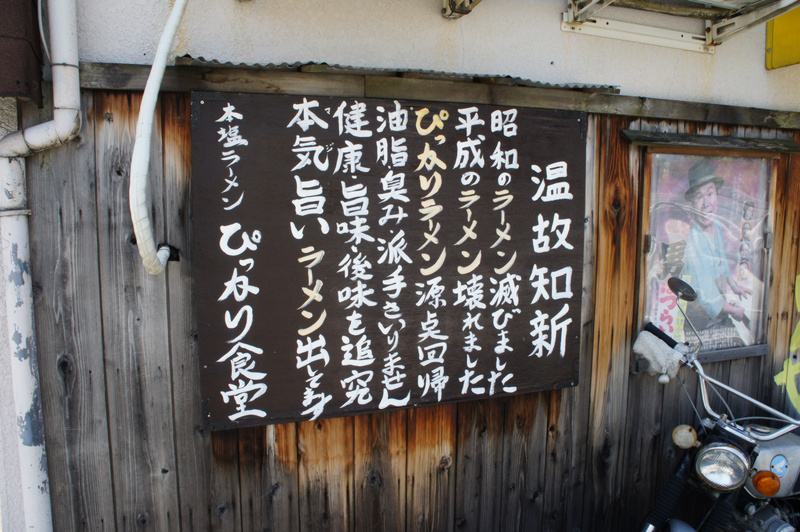 温故知新
昭和のラーメン滅びました
平成のラーメン壊れました
ぴっかりラーメン源点回帰
油脂臭み派手さいりません
健康旨味・後味を追究
本気旨いラーメン出してます
本塩ラーメン ぴっかり食堂